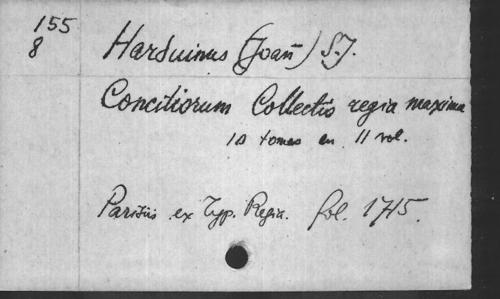 155
8
Harduinus (Joañ) S.J.
Conciliorum Collectio regia maxima
10 tomes en 11 vol.
Parisiis ex Typ. Regia. fol. 1715.